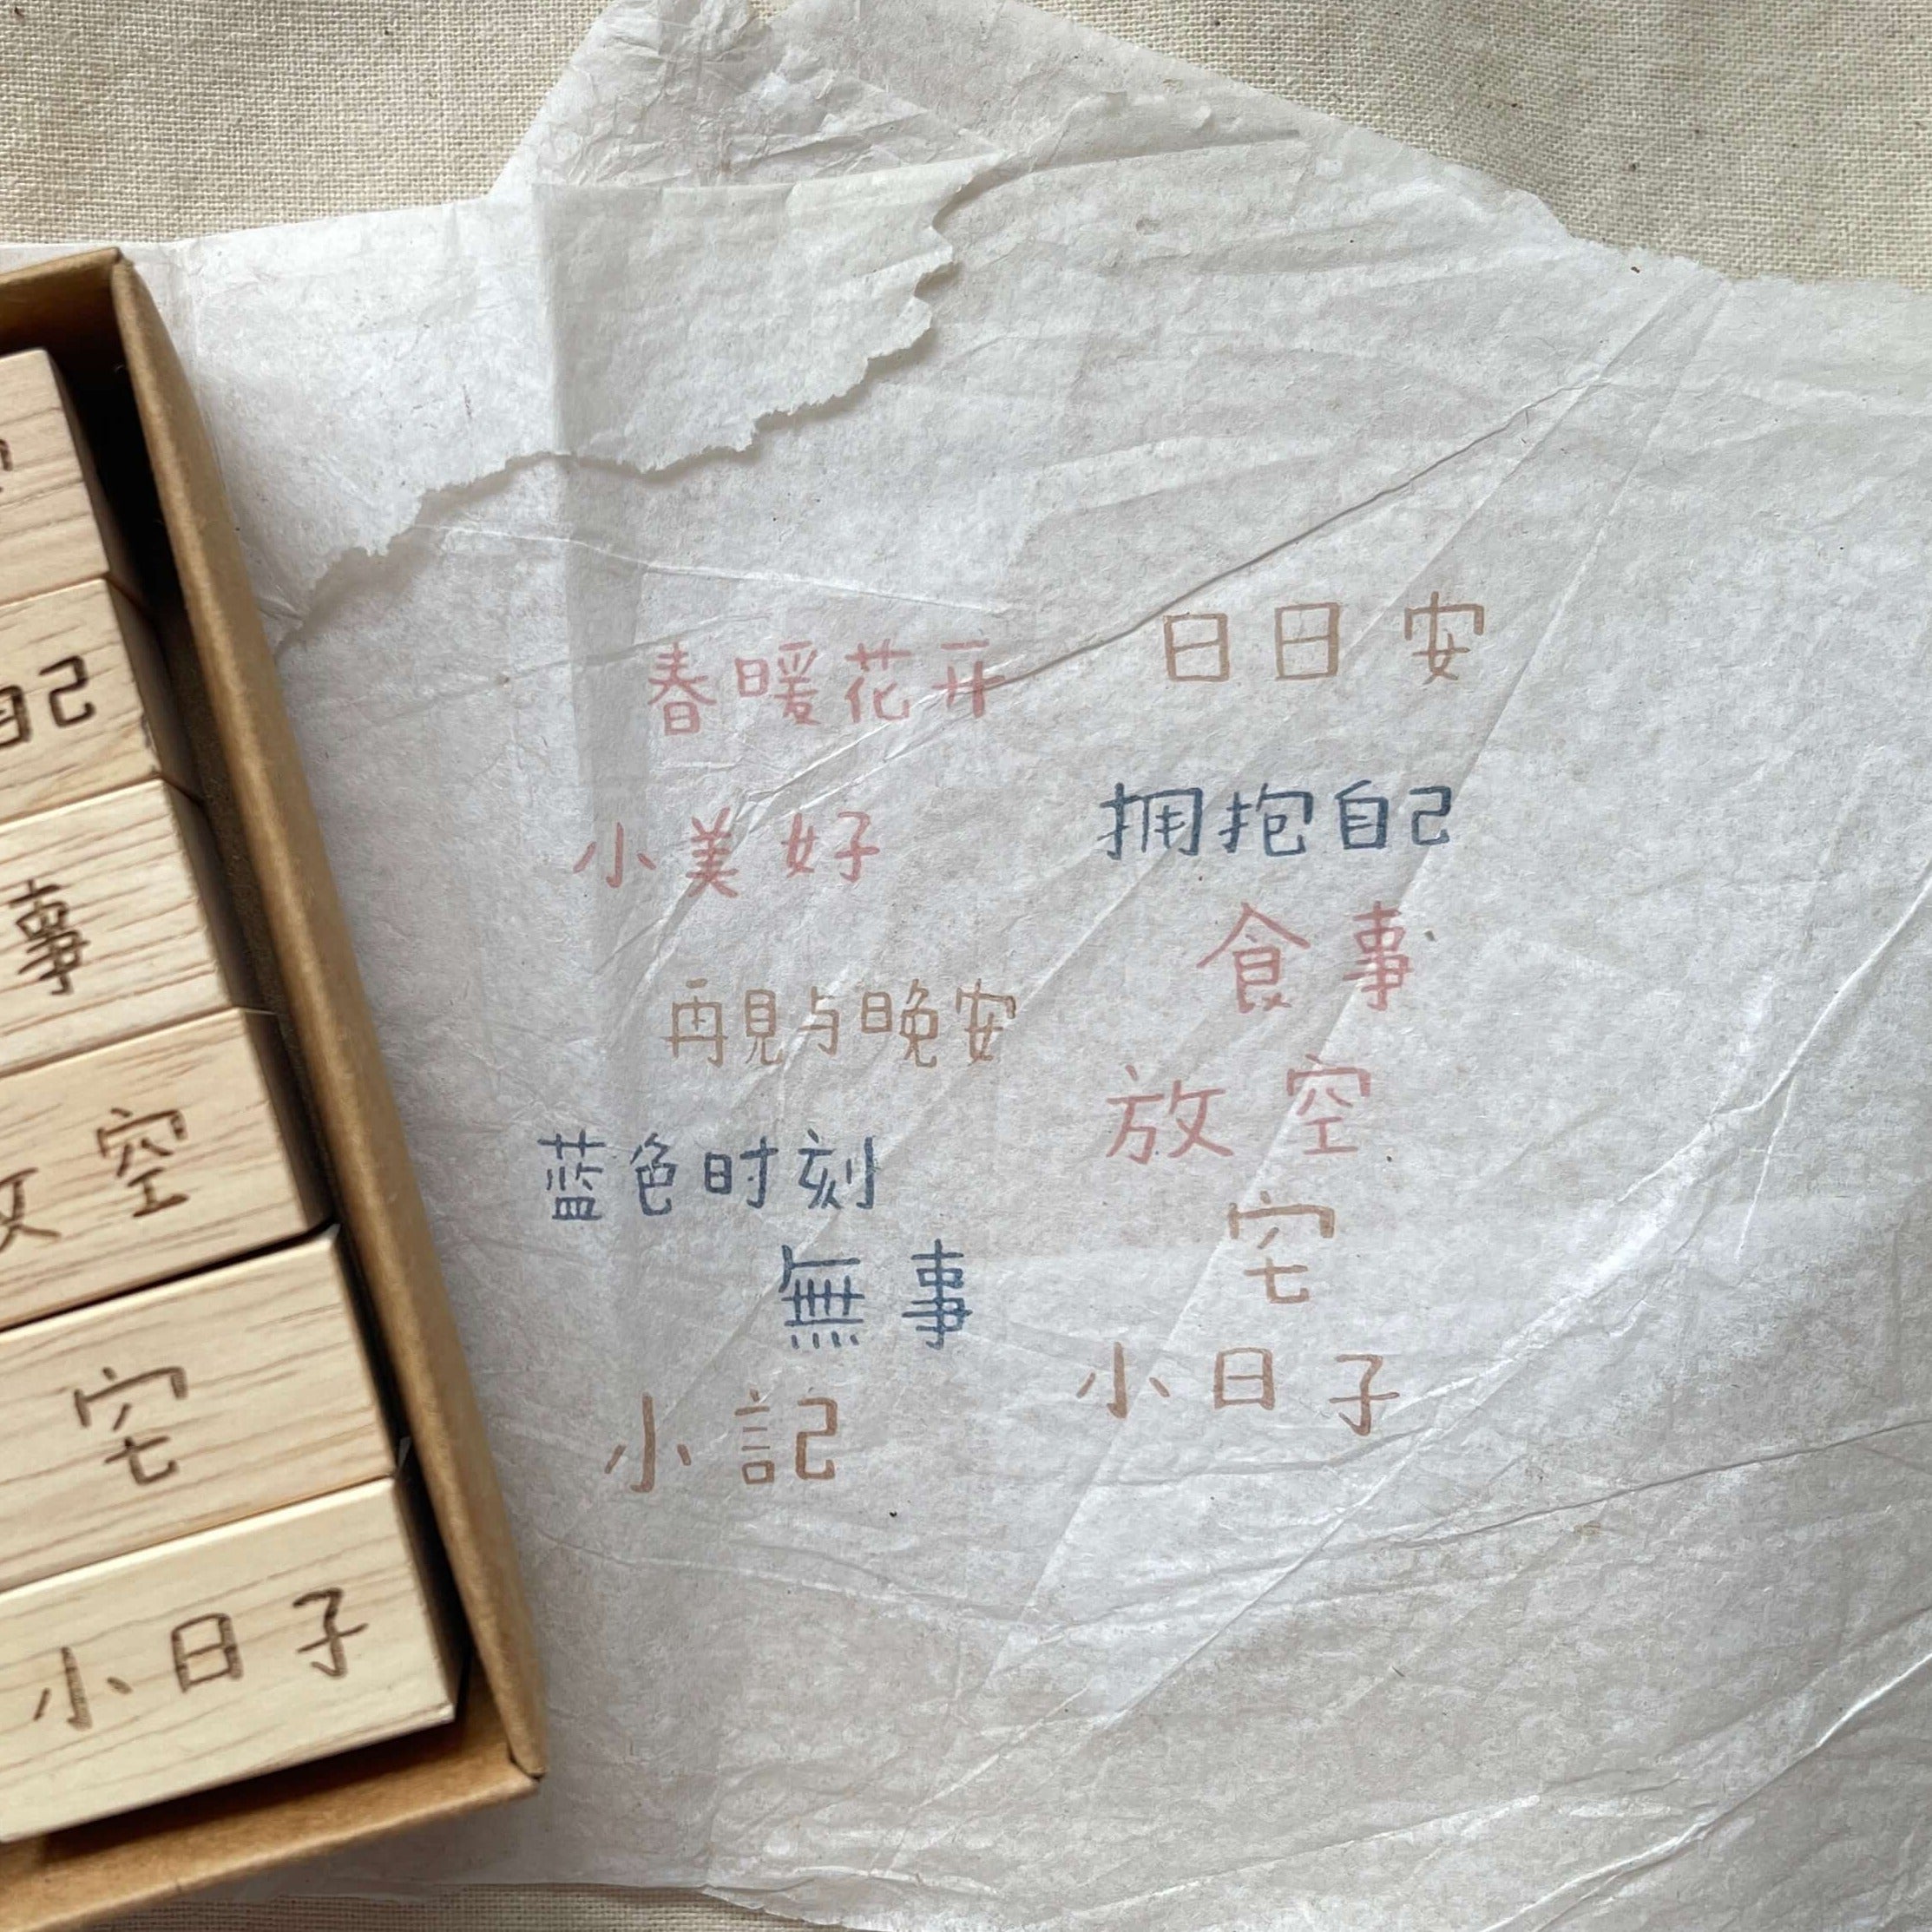 春暖花开
小美好
再見与晚安
蓝色时刻
無事
小記
日日安
拥抱自己
食事
放空
宅
小日子
自己
事
放空
宅
小日子